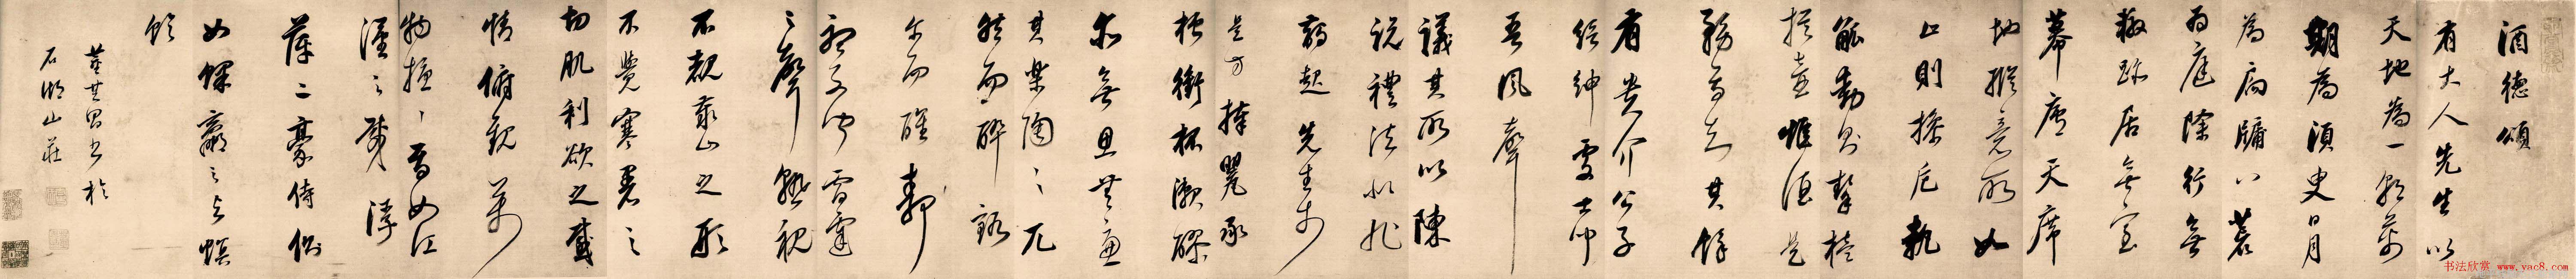 酒德頌
有大人先生以
天地為一朝萬
期為須臾日月
為扃牖八荒
為庭除行無
轍跡居無室
廬幕天席
地縱意所如
止則操卮執
觚動則挈榼
提壺惟酒是
務焉知其餘
有貴介公子
縉紳處士聞
吾風聲
議其所以陳
說禮法是非
蠭起先生於
是方捧罌承
槽銜杯漱醪
無思無慮
其樂陶陶兀
然而醉
爾而醒靜
聽不聞雷霆
之聲熟視
不覩泰山之形
不覺寒暑之
切肌利欲之感
情俯觀萬
物擾擾焉如江
漢之載浮
萍二豪侍側
如蜾蠃之與螟
蛉
董其昌書於
石湖山莊
书法欣赏 www.yac8.com